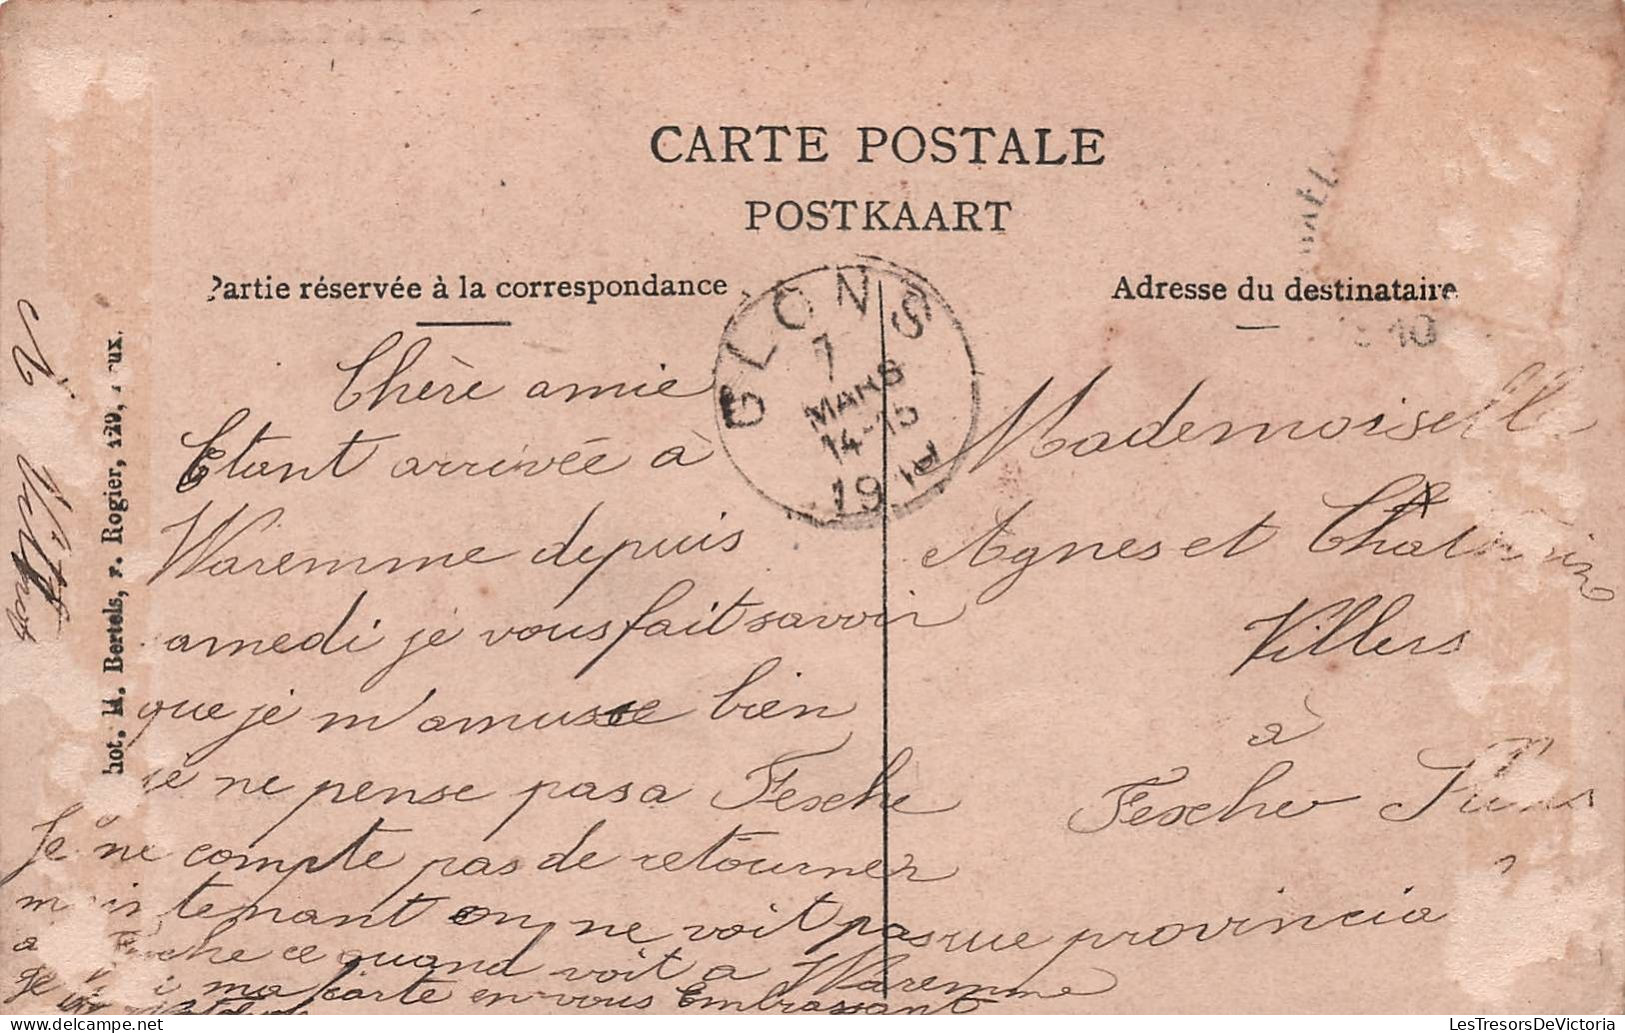 CARTE POSTALE
POSTKAART
Partie réservée à la correspondance
Adresse du destinataire
GLONS
7
MARS
14-15
19
10
hot. H. Bertels, r. Rogier, 129,
Chère amie
Etant arrivée à
Waremme depuis
amedi je vous fait savoir
que je m'amuse bien
je ne pense pas a Fexche
Je ne compte pas de retourner
maintenant on ne voit pas que provincia
a che ce quand voit a Waremme
ma carte en vous Embrassant
Mademoiselle
Agnes et
Villers
à
Fexche